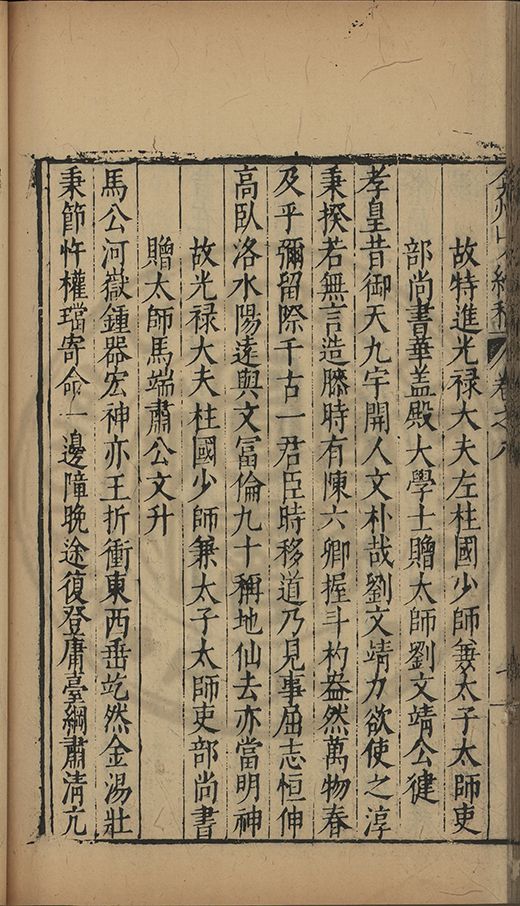 故特進光禄大夫左柱國少師兼太子太師吏
部尚書華盖殿大學士贈太師劉文靖公健
孝皇昔御天九宇開人文朴哉劉文靖力欲使之淳
秉揆若無言造膝時有陳六卿握斗杓盎然萬物春
及乎彌留際千古一君臣時移道乃見事屈志恒伸
高臥洛水陽遠與文冨倫九十稱地仙去亦當明神
故光禄大夫柱國少師兼太子太師吏部尚書
贈太師馬端肅公文升
馬公河嶽鍾器宏神亦王折衝東西垂屹然金湯壯
秉節忤權璫寄命一邊障晚途復登庸臺綱肅清亢